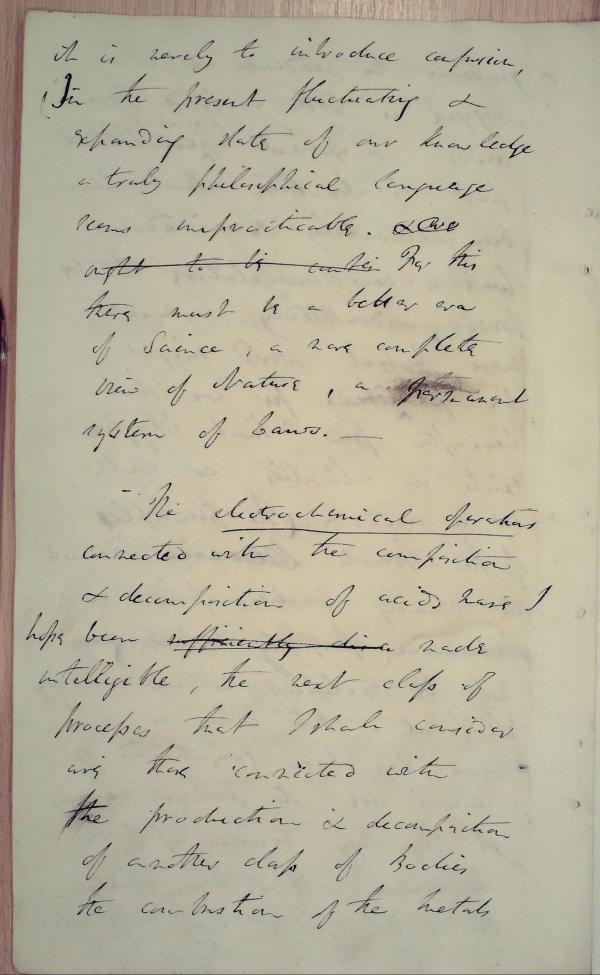 it is merely to introduce confusion,
In the present fluctuating &
expanding state of our knowledge
a truly philosophical language
seems impracticable. & we
ought to be
For this
there must be a better era
of Science, a more complete
view of Nature, a permanent
system of Laws. —
– The electrochemical operations
connected with the composition
& decomposition of acids have I
hope been sufficiently made
intelligible, the next class of
processes that I shall consider
are those connected with
the production & decomposition
of another class of Bodies
the combustion of the metals